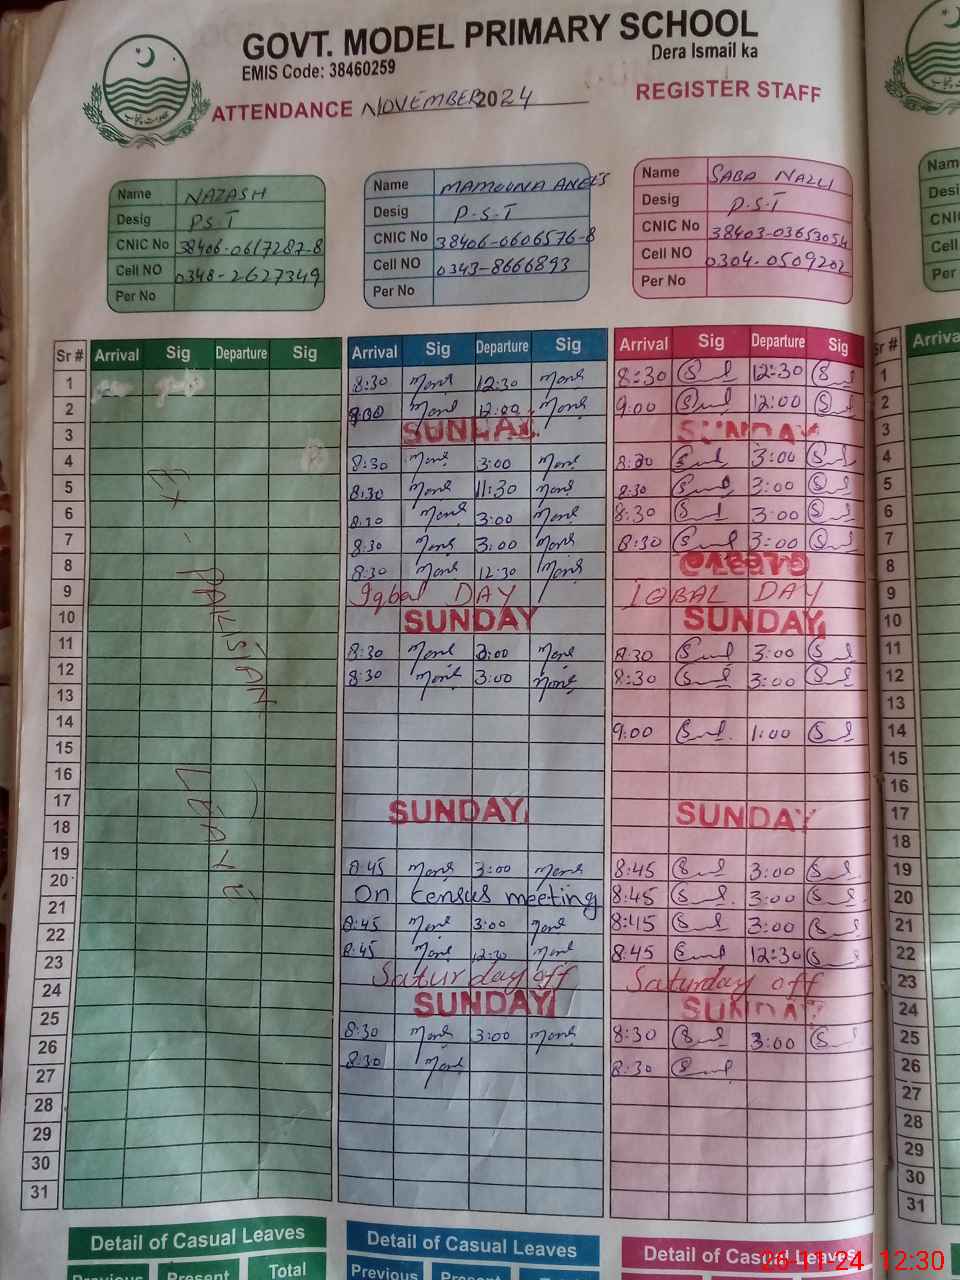 GOVT. MODEL PRIMARY SCHOOL
EMIS Code: 38460259
Dera Ismail ka
ATTENDANCE NOVEMBER 2024 REGISTER STAFF
Name NAZASH
Desig P.S.T
CNIC No 38406-0617287-8
Cell NO 0348-2627349
Per No
Name MAMOUNA ANEES
Desig P.S.T
CNIC No 38406-0606576-8
Cell NO 0343-8666893
Per No
Name SABA NAZLI
Desig P.S.T
CNIC No 38403-0365305
Cell NO 0304-0509202
Per No
Sr # Arrival Sig Departure Sig Arrival Sig Departure Sig Arrival Sig Departure Sig Sr # Arriva
1 8:30 12:30 8:30 12:30 1
2 12:00 9:00 12:00 2
3 SUNDAY SUNDAY 3
4 8:30 3:00 8:30 3:00 4
5 8:30 11:30 8:30 3:00 5
6 8:30 3:00 8:30 3:00 6
7 8:30 3:00 8:30 3:00 7
8 8:30 12:30 8
9 Iqbal DAY IQBAL DAY 9
10 SUNDAY SUNDAY 10
11 8:30 3:00 8:30 3:00 11
12 8:30 3:00 8:30 3:00 12
13 13
14 9:00 1:00 14
15 15
16 16
17 SUNDAY SUNDAY 17
18 18
19 8:45 3:00 8:45 3:00 19
20 On Census meeting 8:45 3:00 20
21 8:45 3:00 8:45 3:00 21
22 8:45 12:30 8:45 12:30 22
23 Saturday off Saturday off 23
24 SUNDAY SUNDAY 24
25 8:30 3:00 8:30 3:00 25
26 8:30 8:30 26
27 27
28 28
29 29
30 30
31 31
Ex - PAKISTAN LEAVE
Detail of Casual Leaves Detail of Casual Leaves Detail of Casual Leaves
Previous Present Total Previous Present
26-11-24 12:30